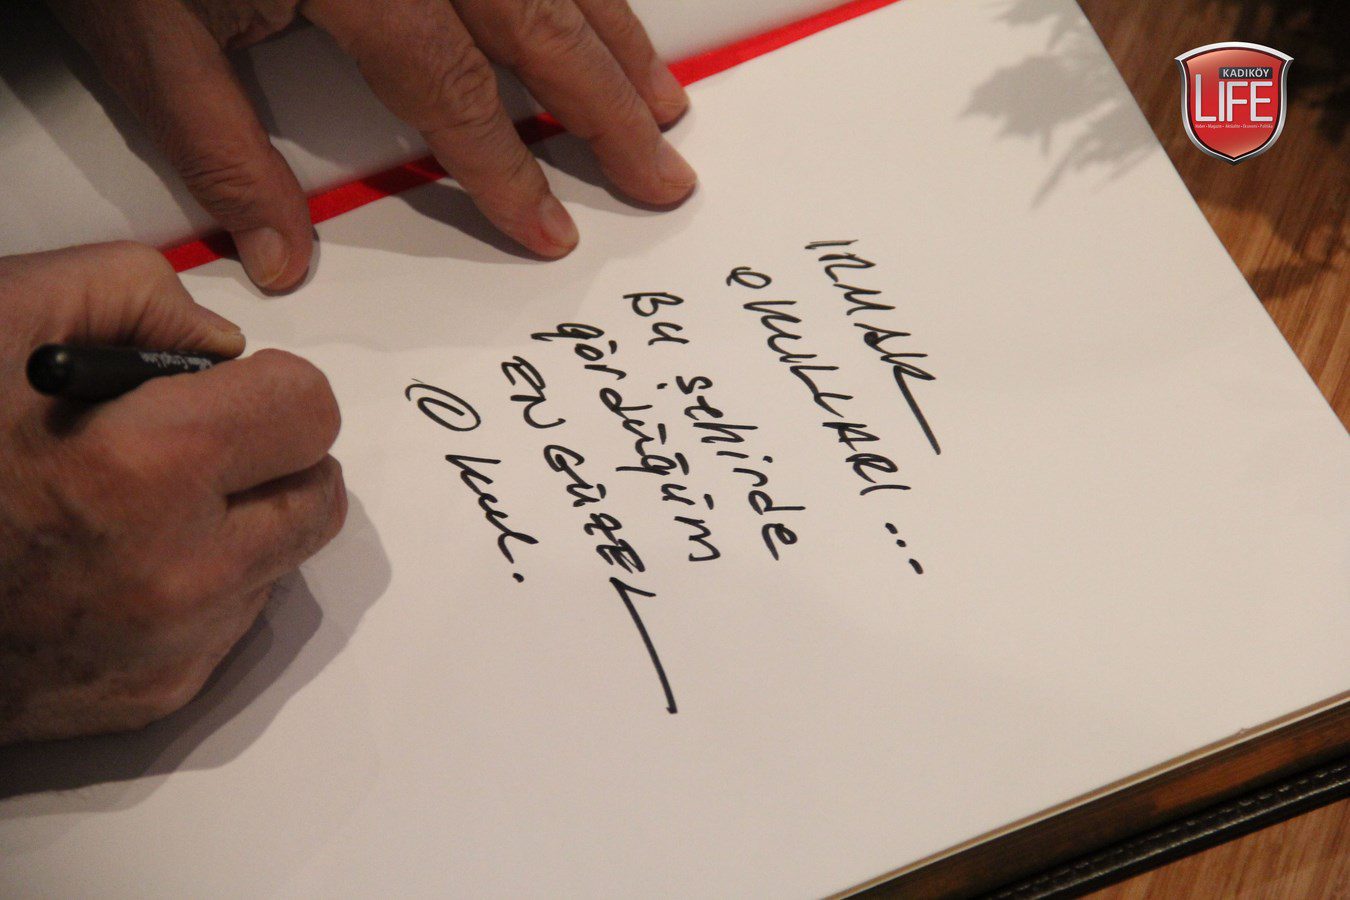 IRMAK
OKULLARI...
Bu şehirde
gördüğüm
EN GÜZEL
Okul.
KADIKÖY
LIFE
Haber • Magazin • Aktüalite • Ekonomi • Politika